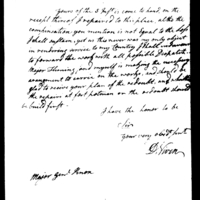 Yours of the 3 Inst. is come to hand on the
receipt thereof, I repaired to the place, altho the
compensation you mention is not equal to the loss
I shall sustain, yet as this never was my only object
in rendering service to my Country I shall endeavour
to forward the work with all possible Dispatch.
Major Fleming, and myself is making the necessary
arrangements to carrie on the works, and should be
glad to receive your plan of the redoubt, and whether
the repairs at fort putman or the redoubt should
be build first.
I have the honor to be
Sir
your very obedt. Servt
D. Niven
Major Genl. Knox